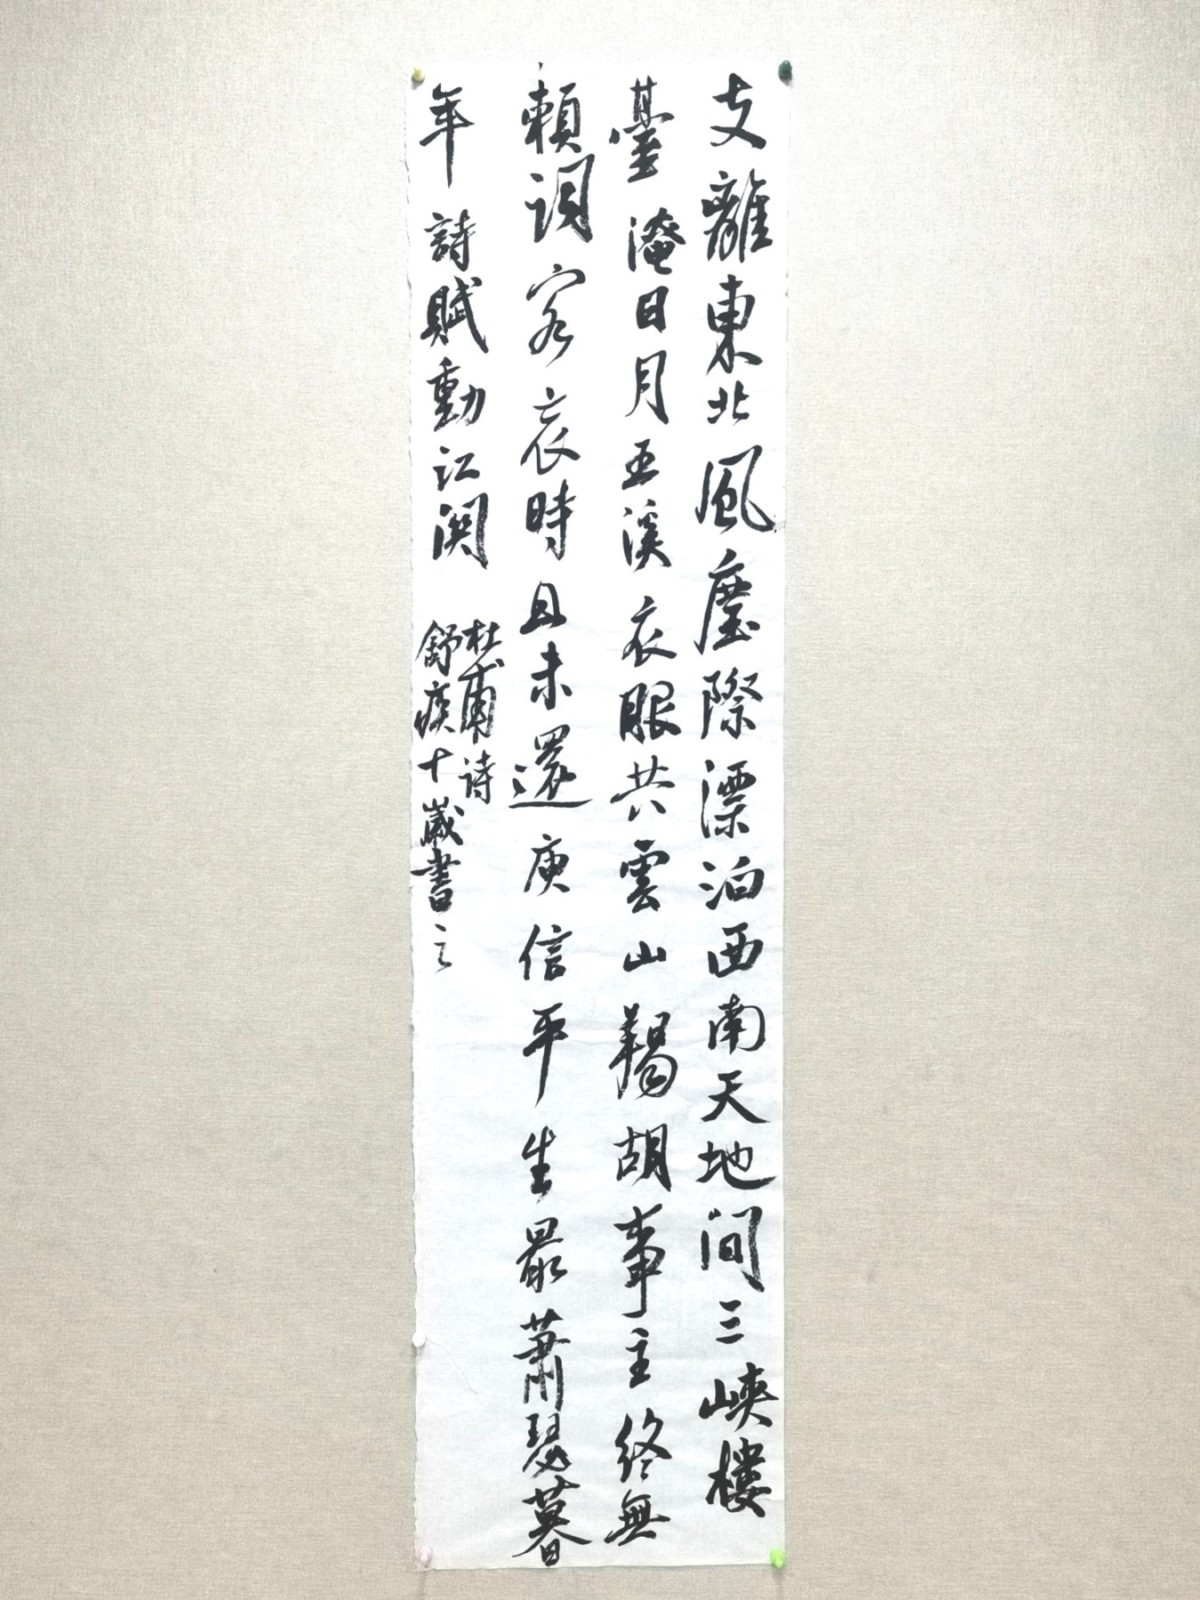 支離東北風塵際漂泊西南天地间三峽樓
臺淹日月五溪衣服共雲山羯胡事主終無
賴詞客哀時且未還庾信平生最蕭瑟暮
年詩賦動江関
杜甫诗
舒痪十嵗書之